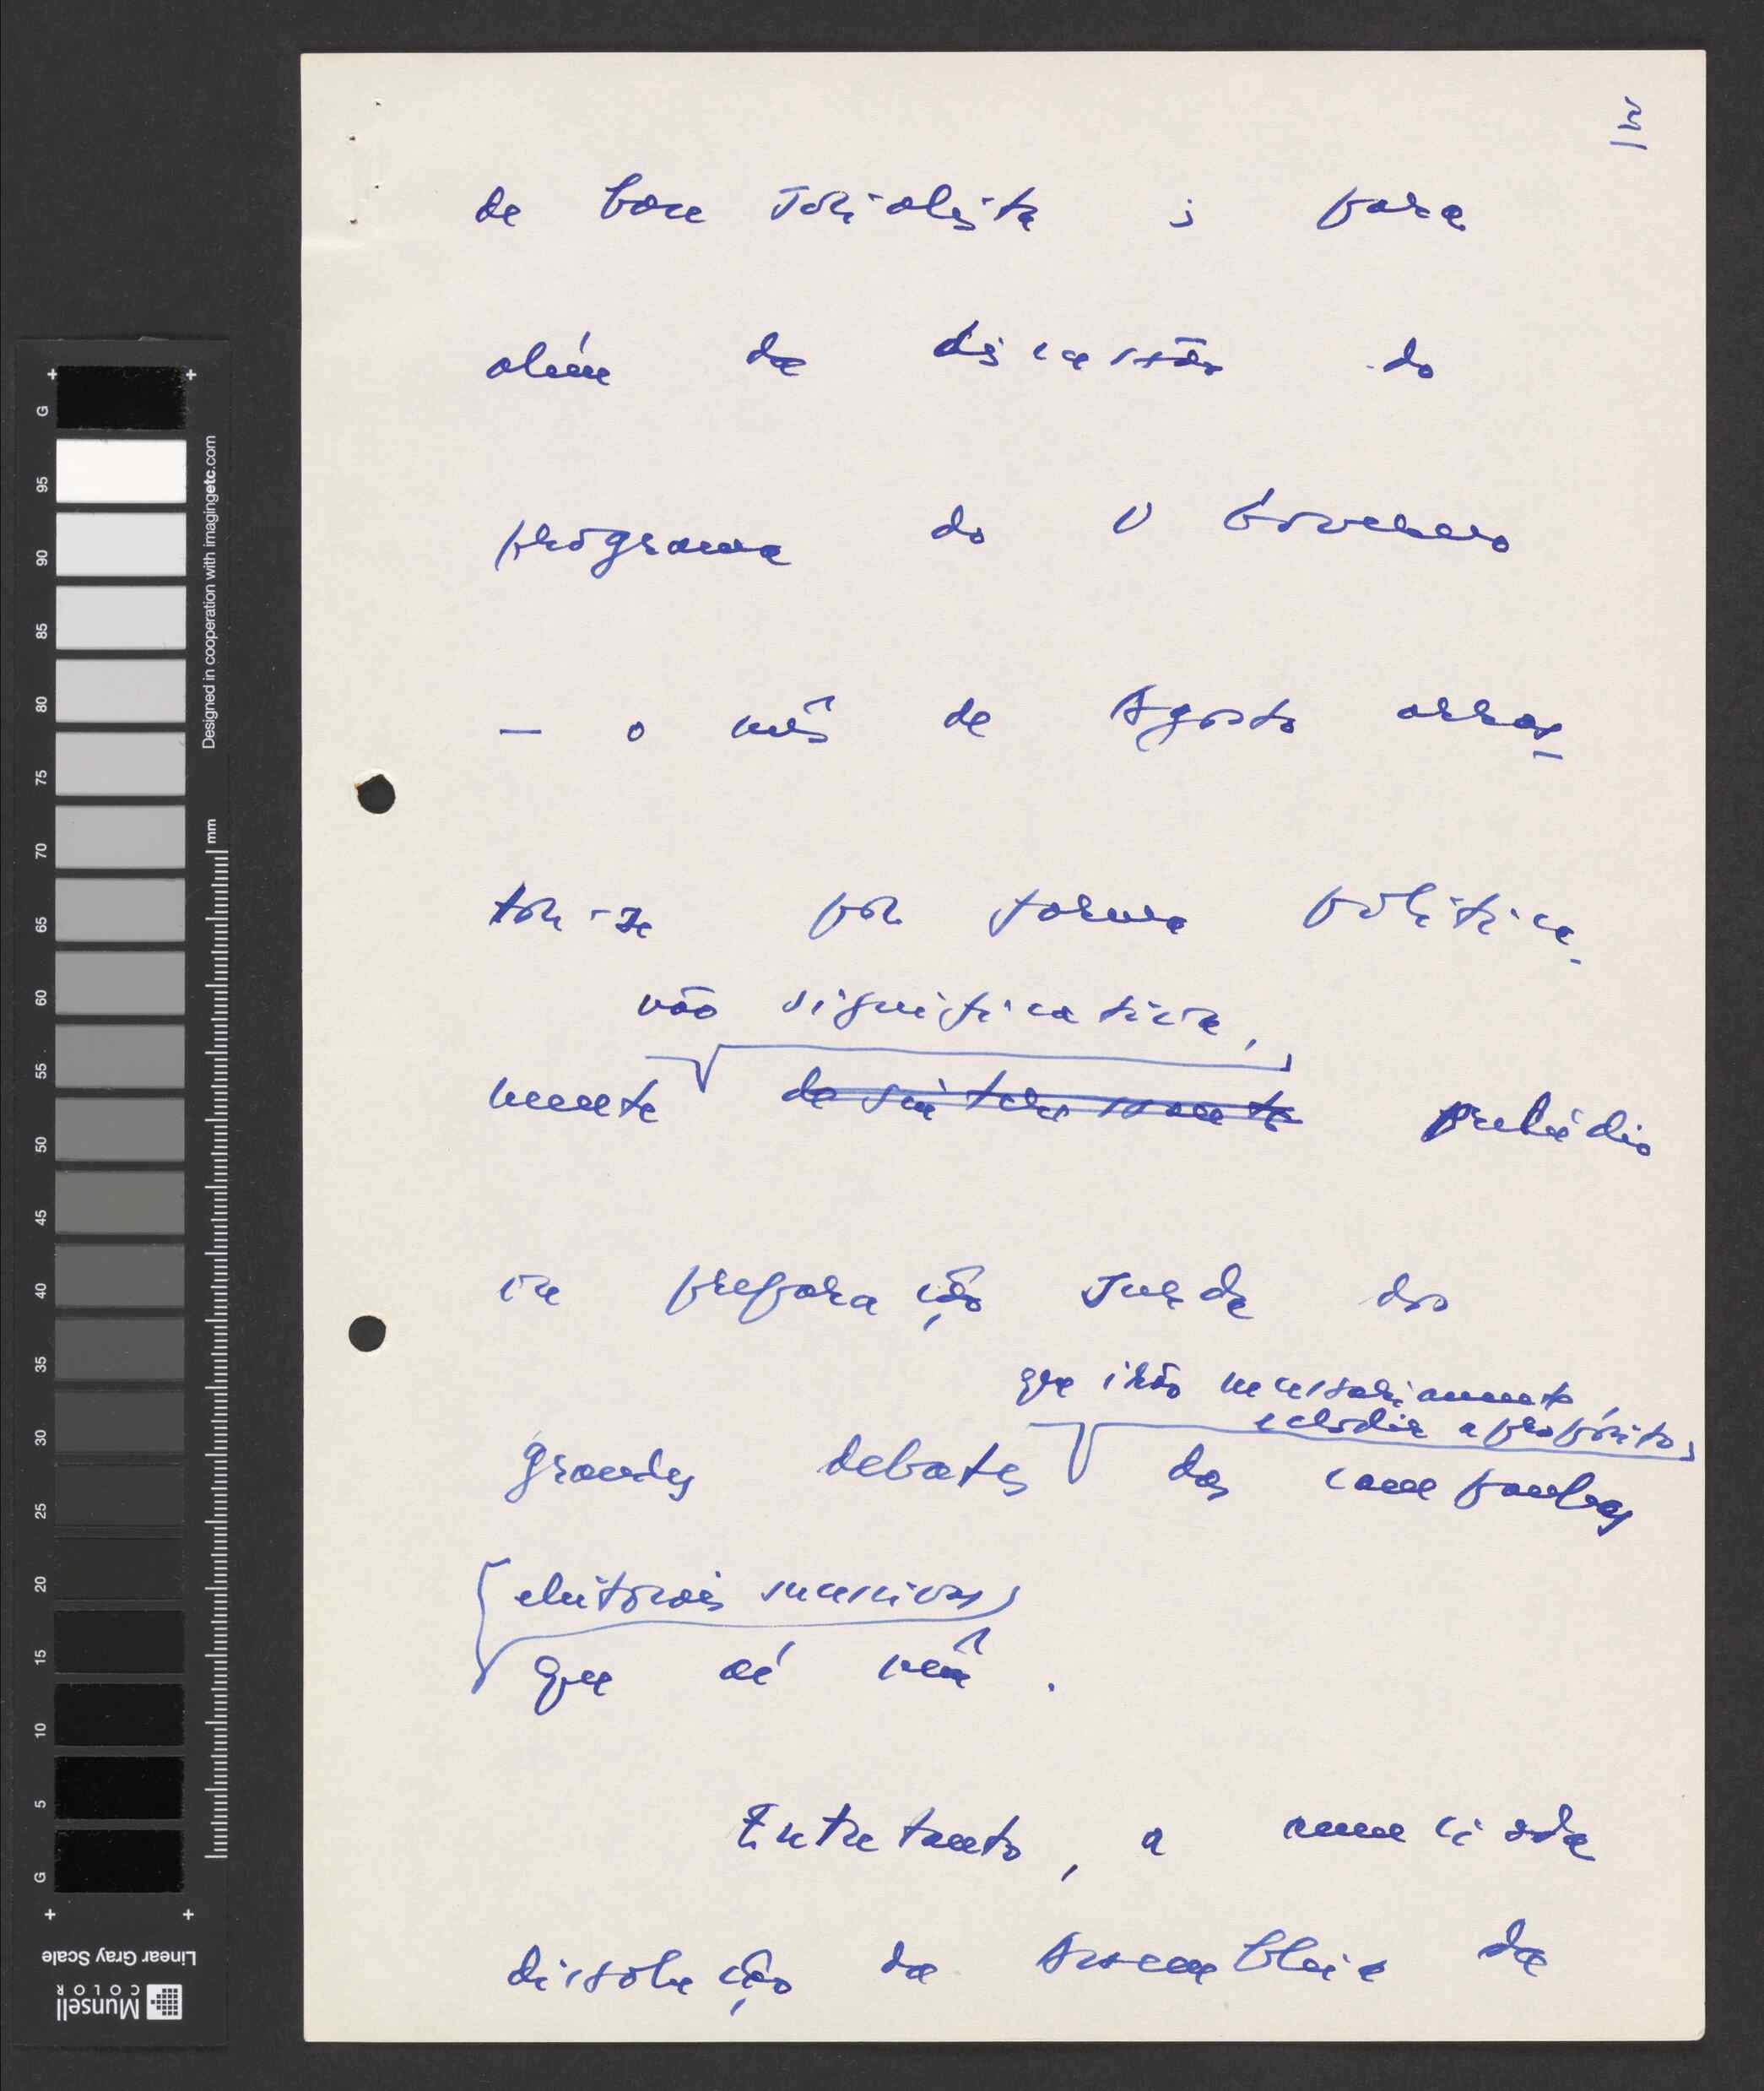 2
de base socialista ; para
além da discussão do
programa do V Governo
— o mês de Agosto arras-
tou-se por forma política-
não significativa,
mente desinteressante prelúdio
e preparação surda dos
que irão necessariamente
eclodir a propósito
grandes debates das campanhas
eleitorais sucessivas
que aí vêm.
Entretanto, a anunciada
dissolução da Assembleia da
G
95
90
85
80
75
70
65
60
55
50
45
40
35
30
25
20
15
10
5
G
mm
Designed in cooperation with imagingetc.com
Linear Gray Scale
Munsell
COLOR